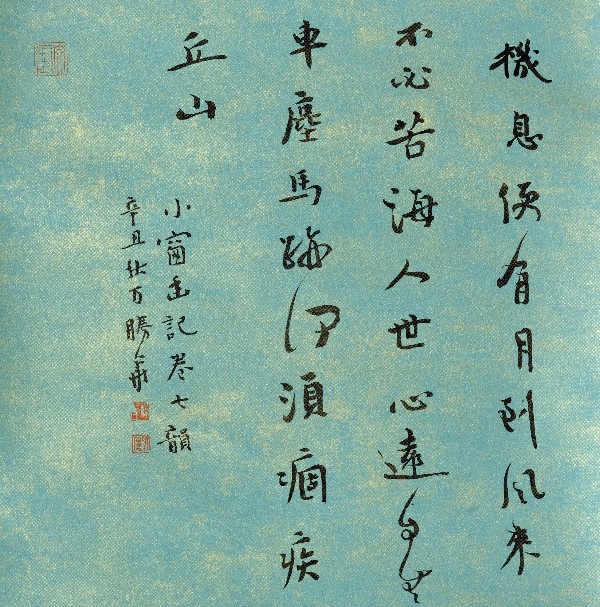 機息便有月到風來
不必苦海人世心遠自無
車塵馬跡何須痼疾
丘山
小窗幽記卷七韻
辛丑秋万勝華